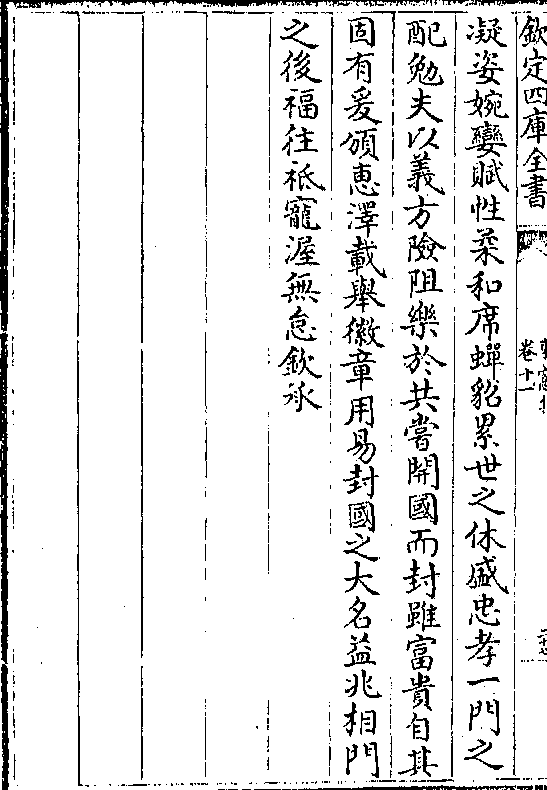 欽定四庫全書
卷十一
凝姿婉孌賦性柔和席蟬貂累世之休盛忠孝一門之
配勉夫以義方險阻樂於共嘗開國而封雖富貴自其
固有爰頒惠澤載舉徽章用易封國之大名益兆相門
之後福往祗寵渥無怠欽承